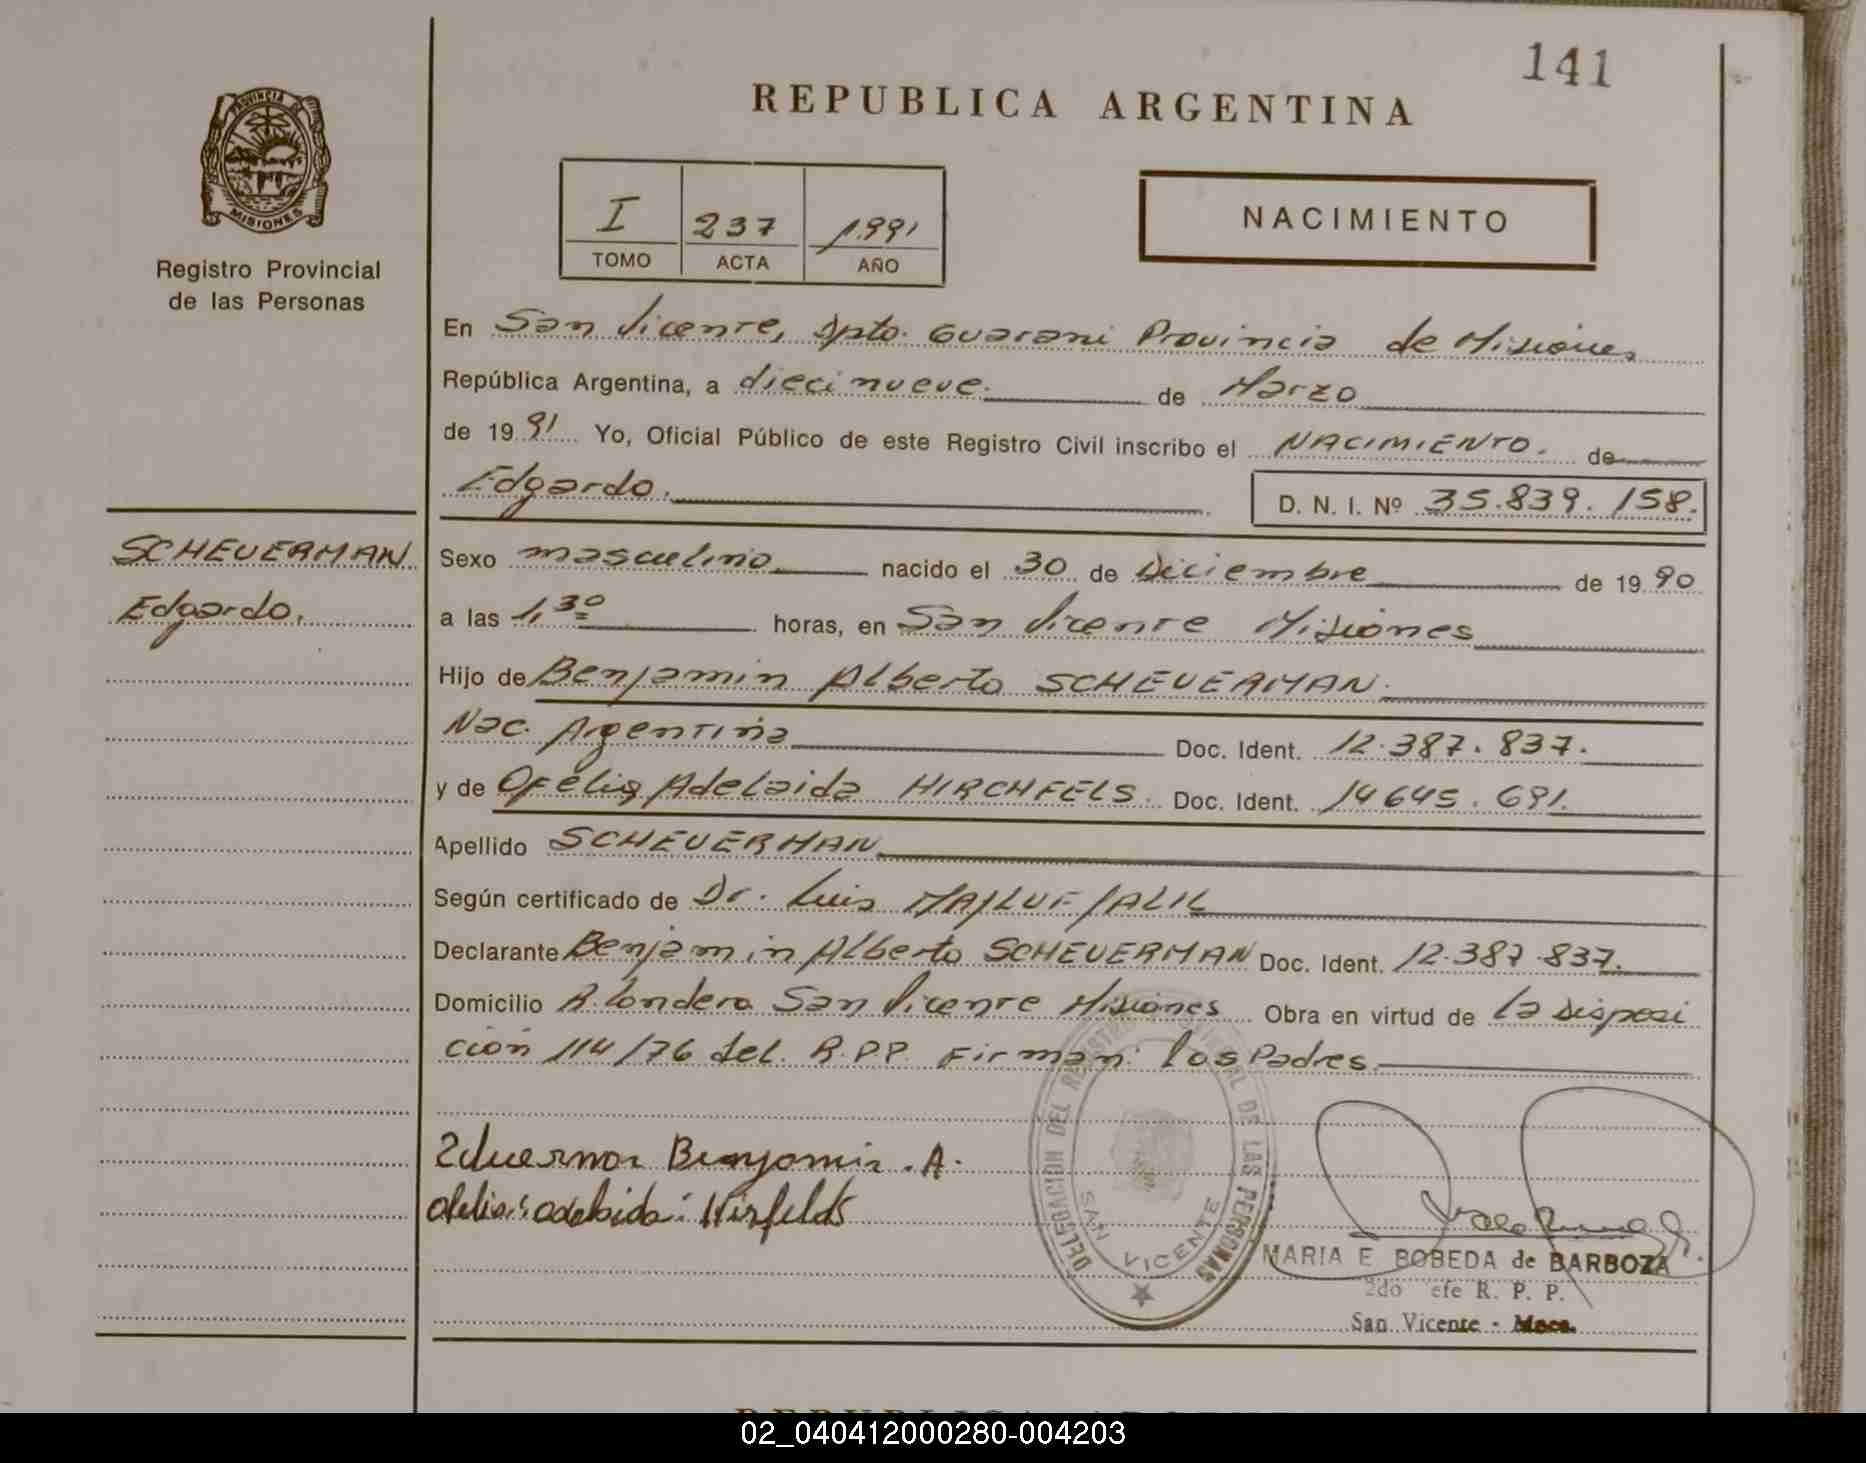 141
REPUBLICA ARGENTINA
PROVINCIA DE
MISIONES
Registro Provincial
de las Personas
I 237 1991
TOMO ACTA AÑO
NACIMIENTO
En San Vicente, Dpto. Guarani Provincia de Misiones
República Argentina, a diecinueve. de Marzo
de 1991 Yo, Oficial Público de este Registro Civil inscribo el NACIMIENTO. de
Edgardo.
D. N. I. Nº 35.839.158.
SCHEUERMAN
Edgardo.
Sexo masculino nacido el 30 de Diciembre de 1990
a las 1,30 horas, en San Vicente Misiones
Hijo de Benjamin Alberto SCHEUERMAN.
Nac. Argentina Doc. Ident. 12.387.837.
y de Ofelia Adelaida HIRCHFELS. Doc. Ident. 14645.691.
Apellido SCHEUERMAN
Según certificado de Dr. Luis MAJLUF JALIL
Declarante Benjamin Alberto SCHEUERMAN Doc. Ident. 12.387.837.
Domicilio R. Londero San Vicente Misiones Obra en virtud de la disposi
cion 114/76 del. R.P.P. Firman: los Padres.
Benjamin .A.
adelaida Hirfelds
DELEGACION DEL REGISTRO PROVINCIAL DE LAS PERSONAS
SAN VICENTE
MARIA E BOBEDA de BARBOZA
2do efe R. P. P.
San Vicente - Mnes.
02_040412000280-004203